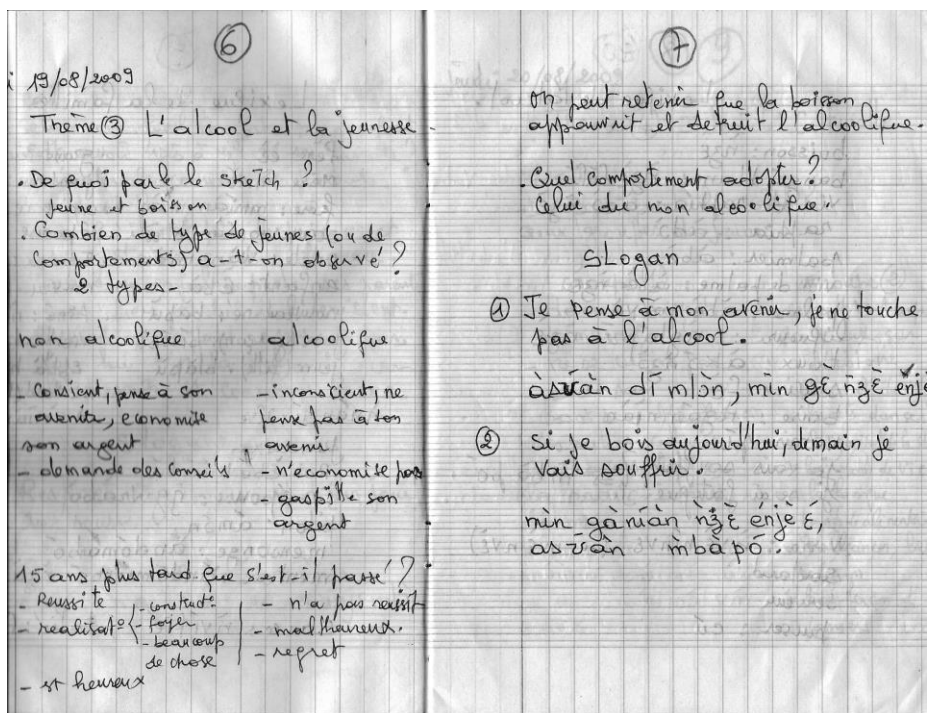 6
19/08/2009
Thème ③ L'alcool et la jeunesse
. De quoi parle le sketch ?
jeune et boisson
. Combien de type de jeunes (ou de
comportements) a-t-on observé ?
2 types-
non alcoolique alcoolique
- Consient, pense à son
avenir, economise
son argent
- demande des conseils
- inconscient, ne
pense pas à son
avenir
- n'economise pas
- gaspille son
argent
15 ans plus tard que s'est-il passé ?
- Reussite
- realisat° - construct°
- foyer
- beaucoup
de chose
- est heureux
- n'a pas reussit
- malheureux.
- regret
7
On peut retenir que la boisson
appauvrit et detruit l'alcoolique.
. Quel comportement adopter ?
Celui du non alcoolique.
SLogan
① Je pense à mon avenir, je ne touche
pas à l'alcool.
dī mlɔ̀n, mìn gɛ̀ ǹʒɛ̀
② Si je bois aujourd'hui, demain je
vais souffrir.
mìn gànìàn ǹʒɛ̀ énjè ɛ,
m̀bàpó.